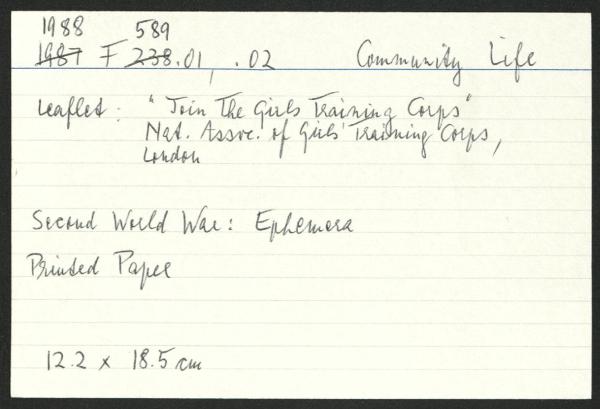 1988 589
1987 F 238.01, .02 Community Life
Leaflet: "Join The Girls Training Corps"
Nat. Assoc. of Girls' Training Corps,
London
Second World War: Ephemera
Printed Paper
12.2 x 18.5 cm